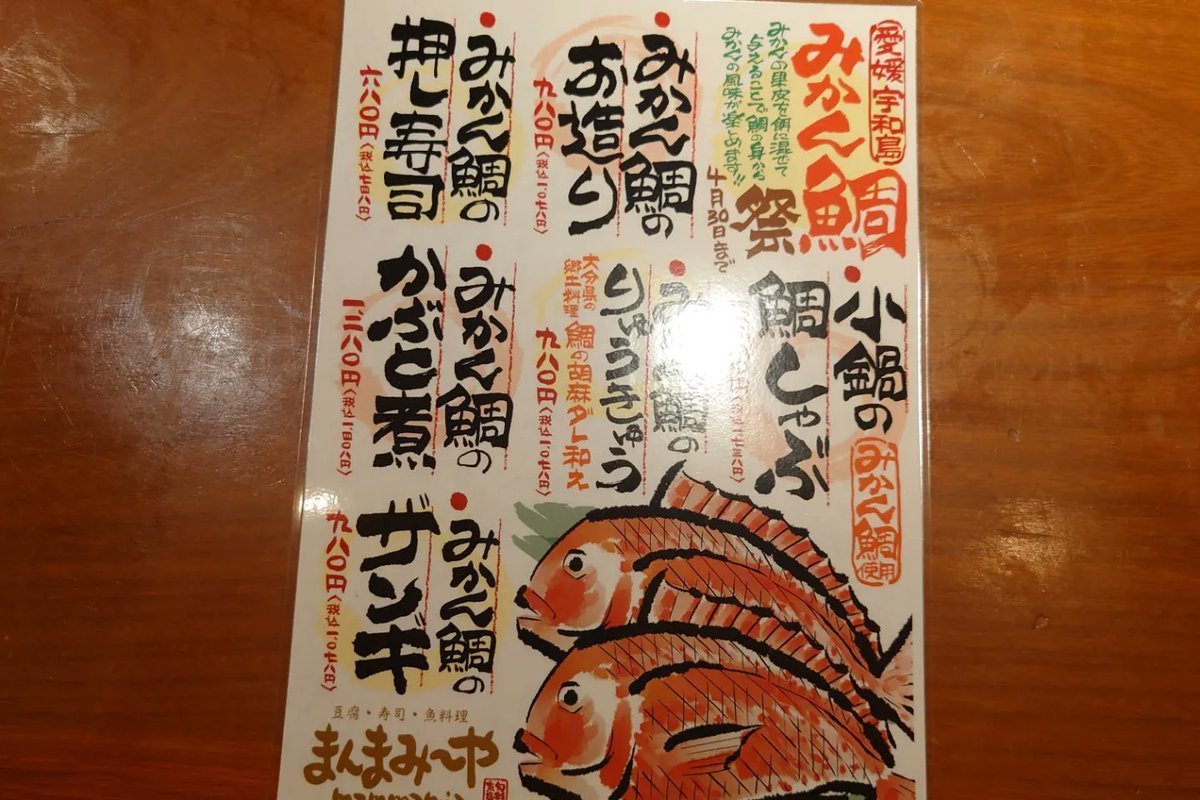 愛媛宇和島
みかん鯛
祭
みかんの果皮を餌に混ぜて
与えることで鯛の身から
みかんの風味が楽しめます!!
4月30日まで
小鍋の
鯛しゃぶ
みかん鯛
使用
みかん鯛の
お造り
九八〇円(税込一,〇七八円)
みかん鯛の
りゅうきゅう
大分県の
郷土料理
鯛の胡麻ダレ和え
九八〇円(税込一,〇七八円)
みかん鯛の
押し寿司
六八〇円(税込七四八円)
みかん鯛の
かぶと煮
一,二八〇円(税込一,四〇八円)
みかん鯛の
ザンギ
九八〇円(税込一,〇七八円)
豆腐・寿司・魚料理
まんまみ〜や